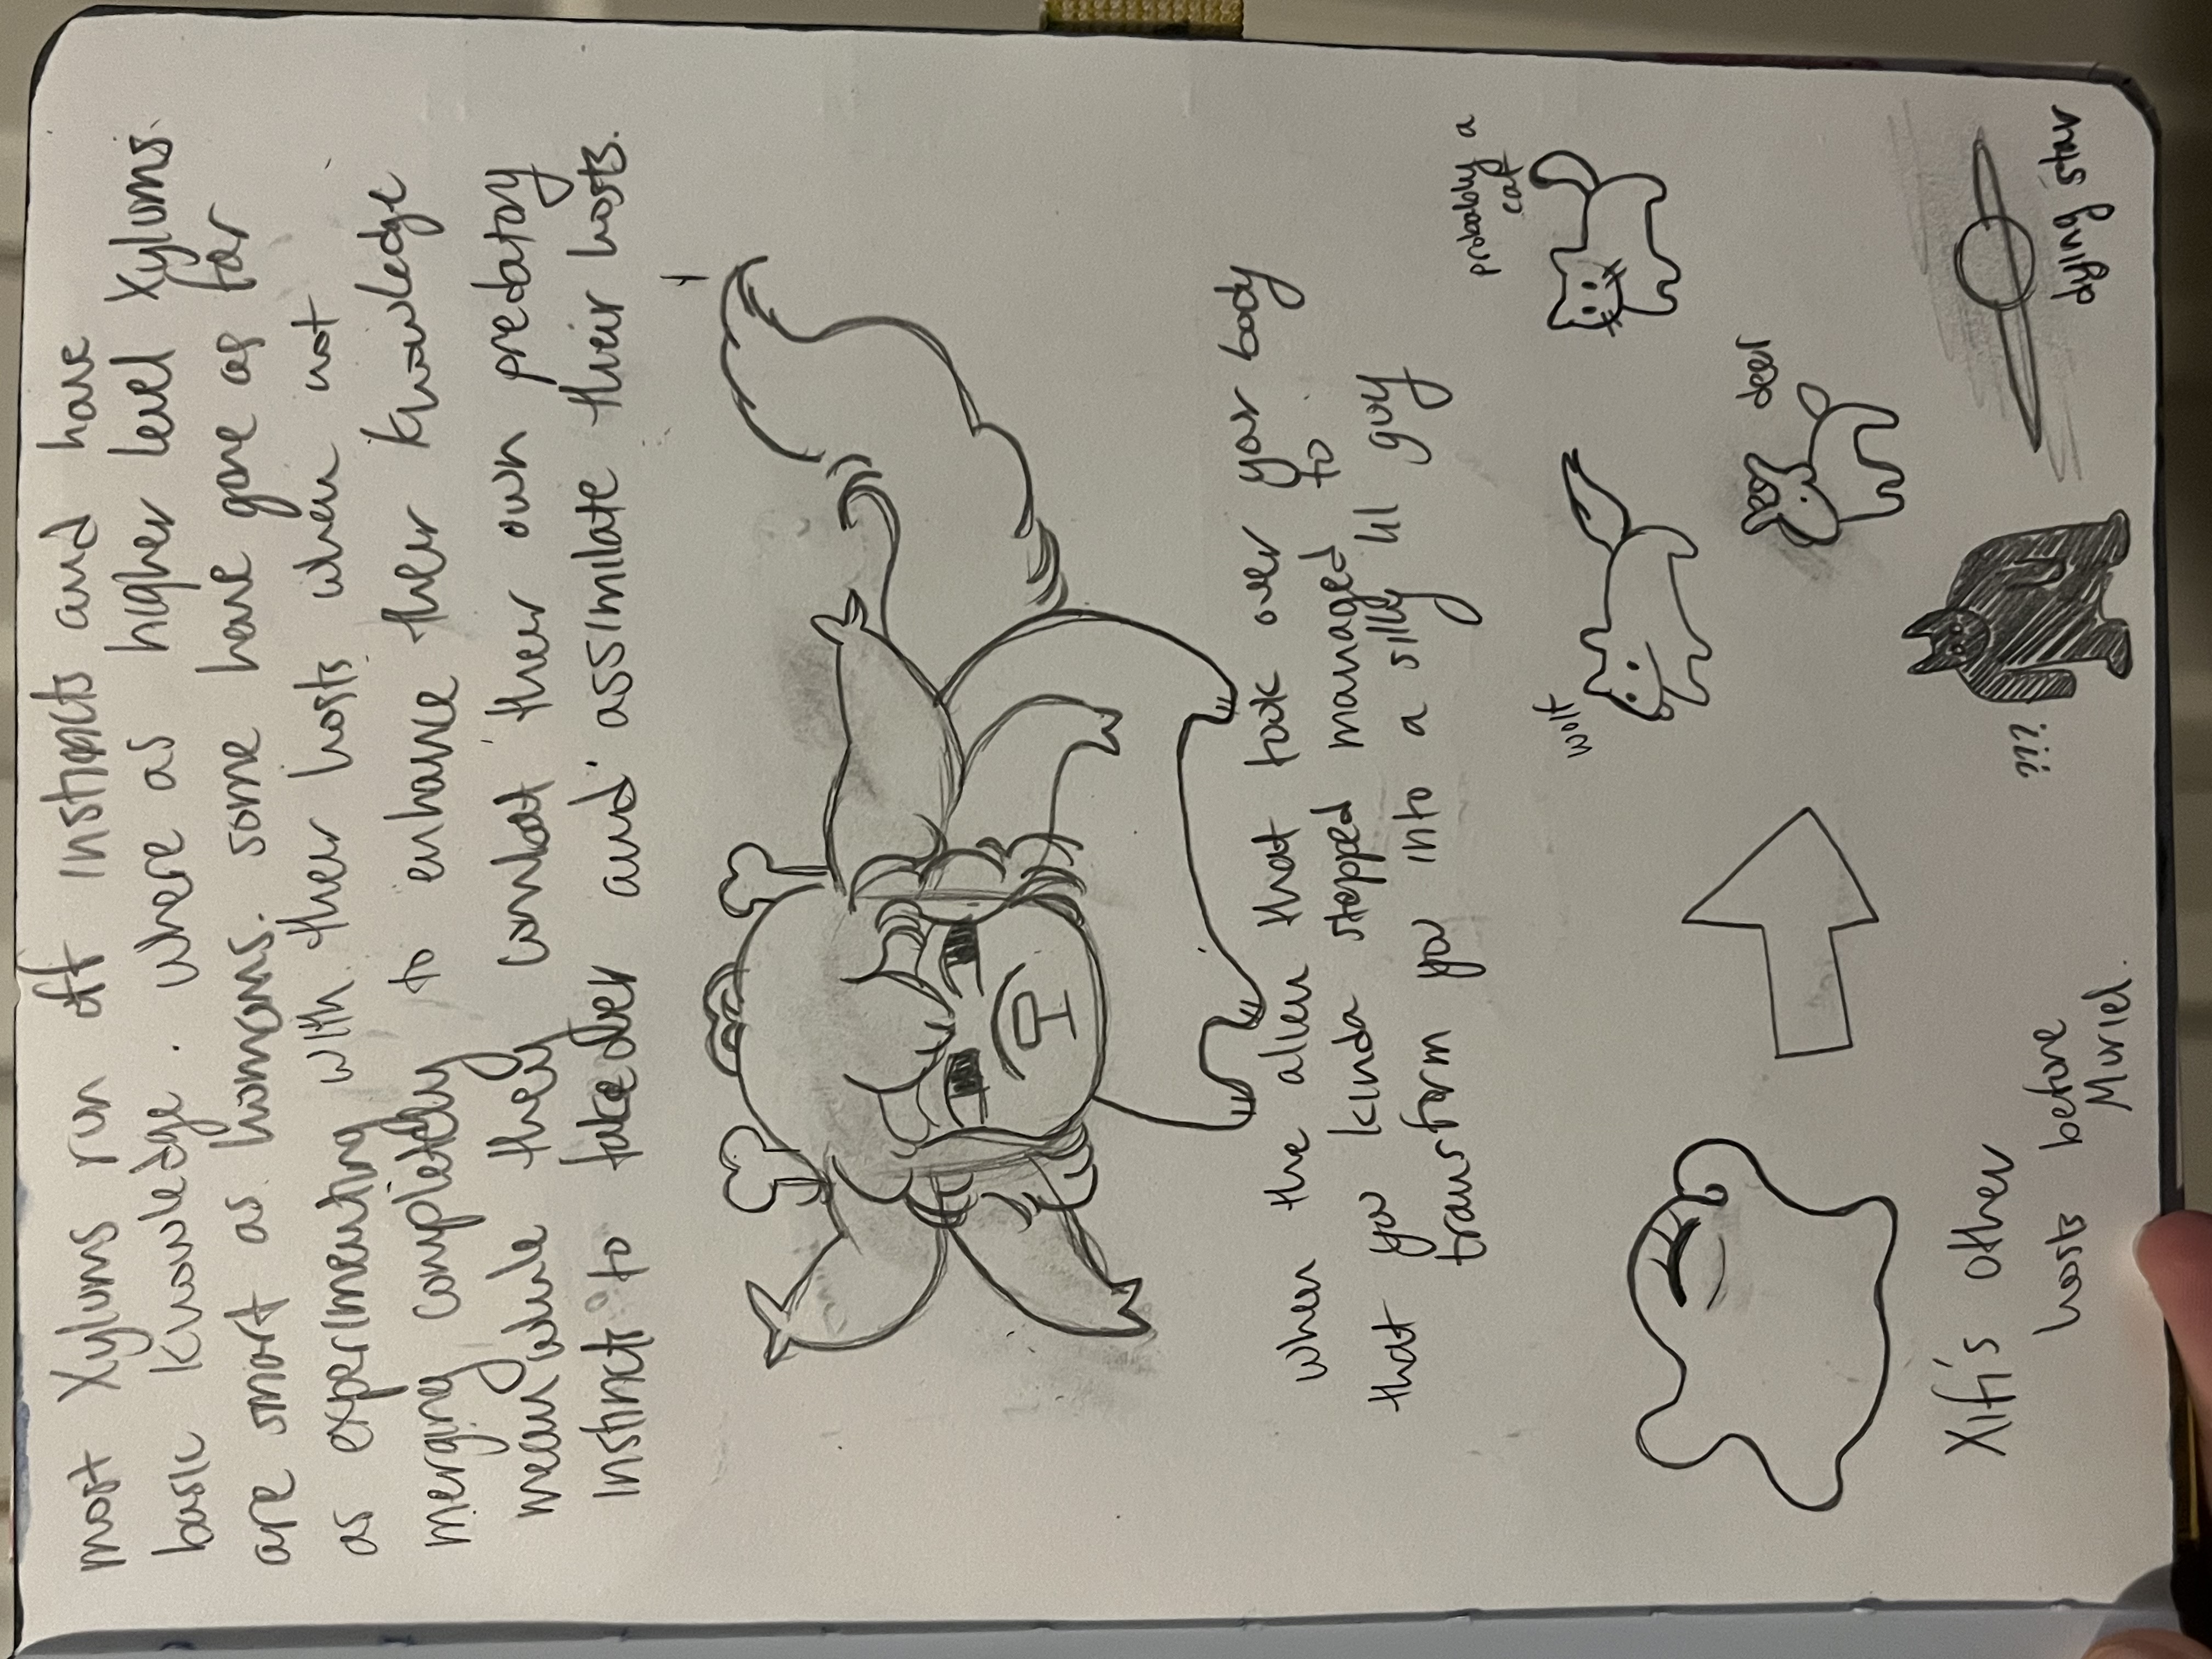 most Xylums run off instincts and have
basic knowledge. where as higher level Xylums.
are smart as humans. some have gone as far
as experimenting with their hosts when not
merging completely to enhance their knowledge
meanwhile they combat their own predatory
instincts to takeover and assimilate their hosts.
when the alien that took over your body
that you kinda stepped managed to
transform you into a silly lil guy
probably a
cat
wolf
deer
Xifi's other
hosts before
Muriel.
???
dying star